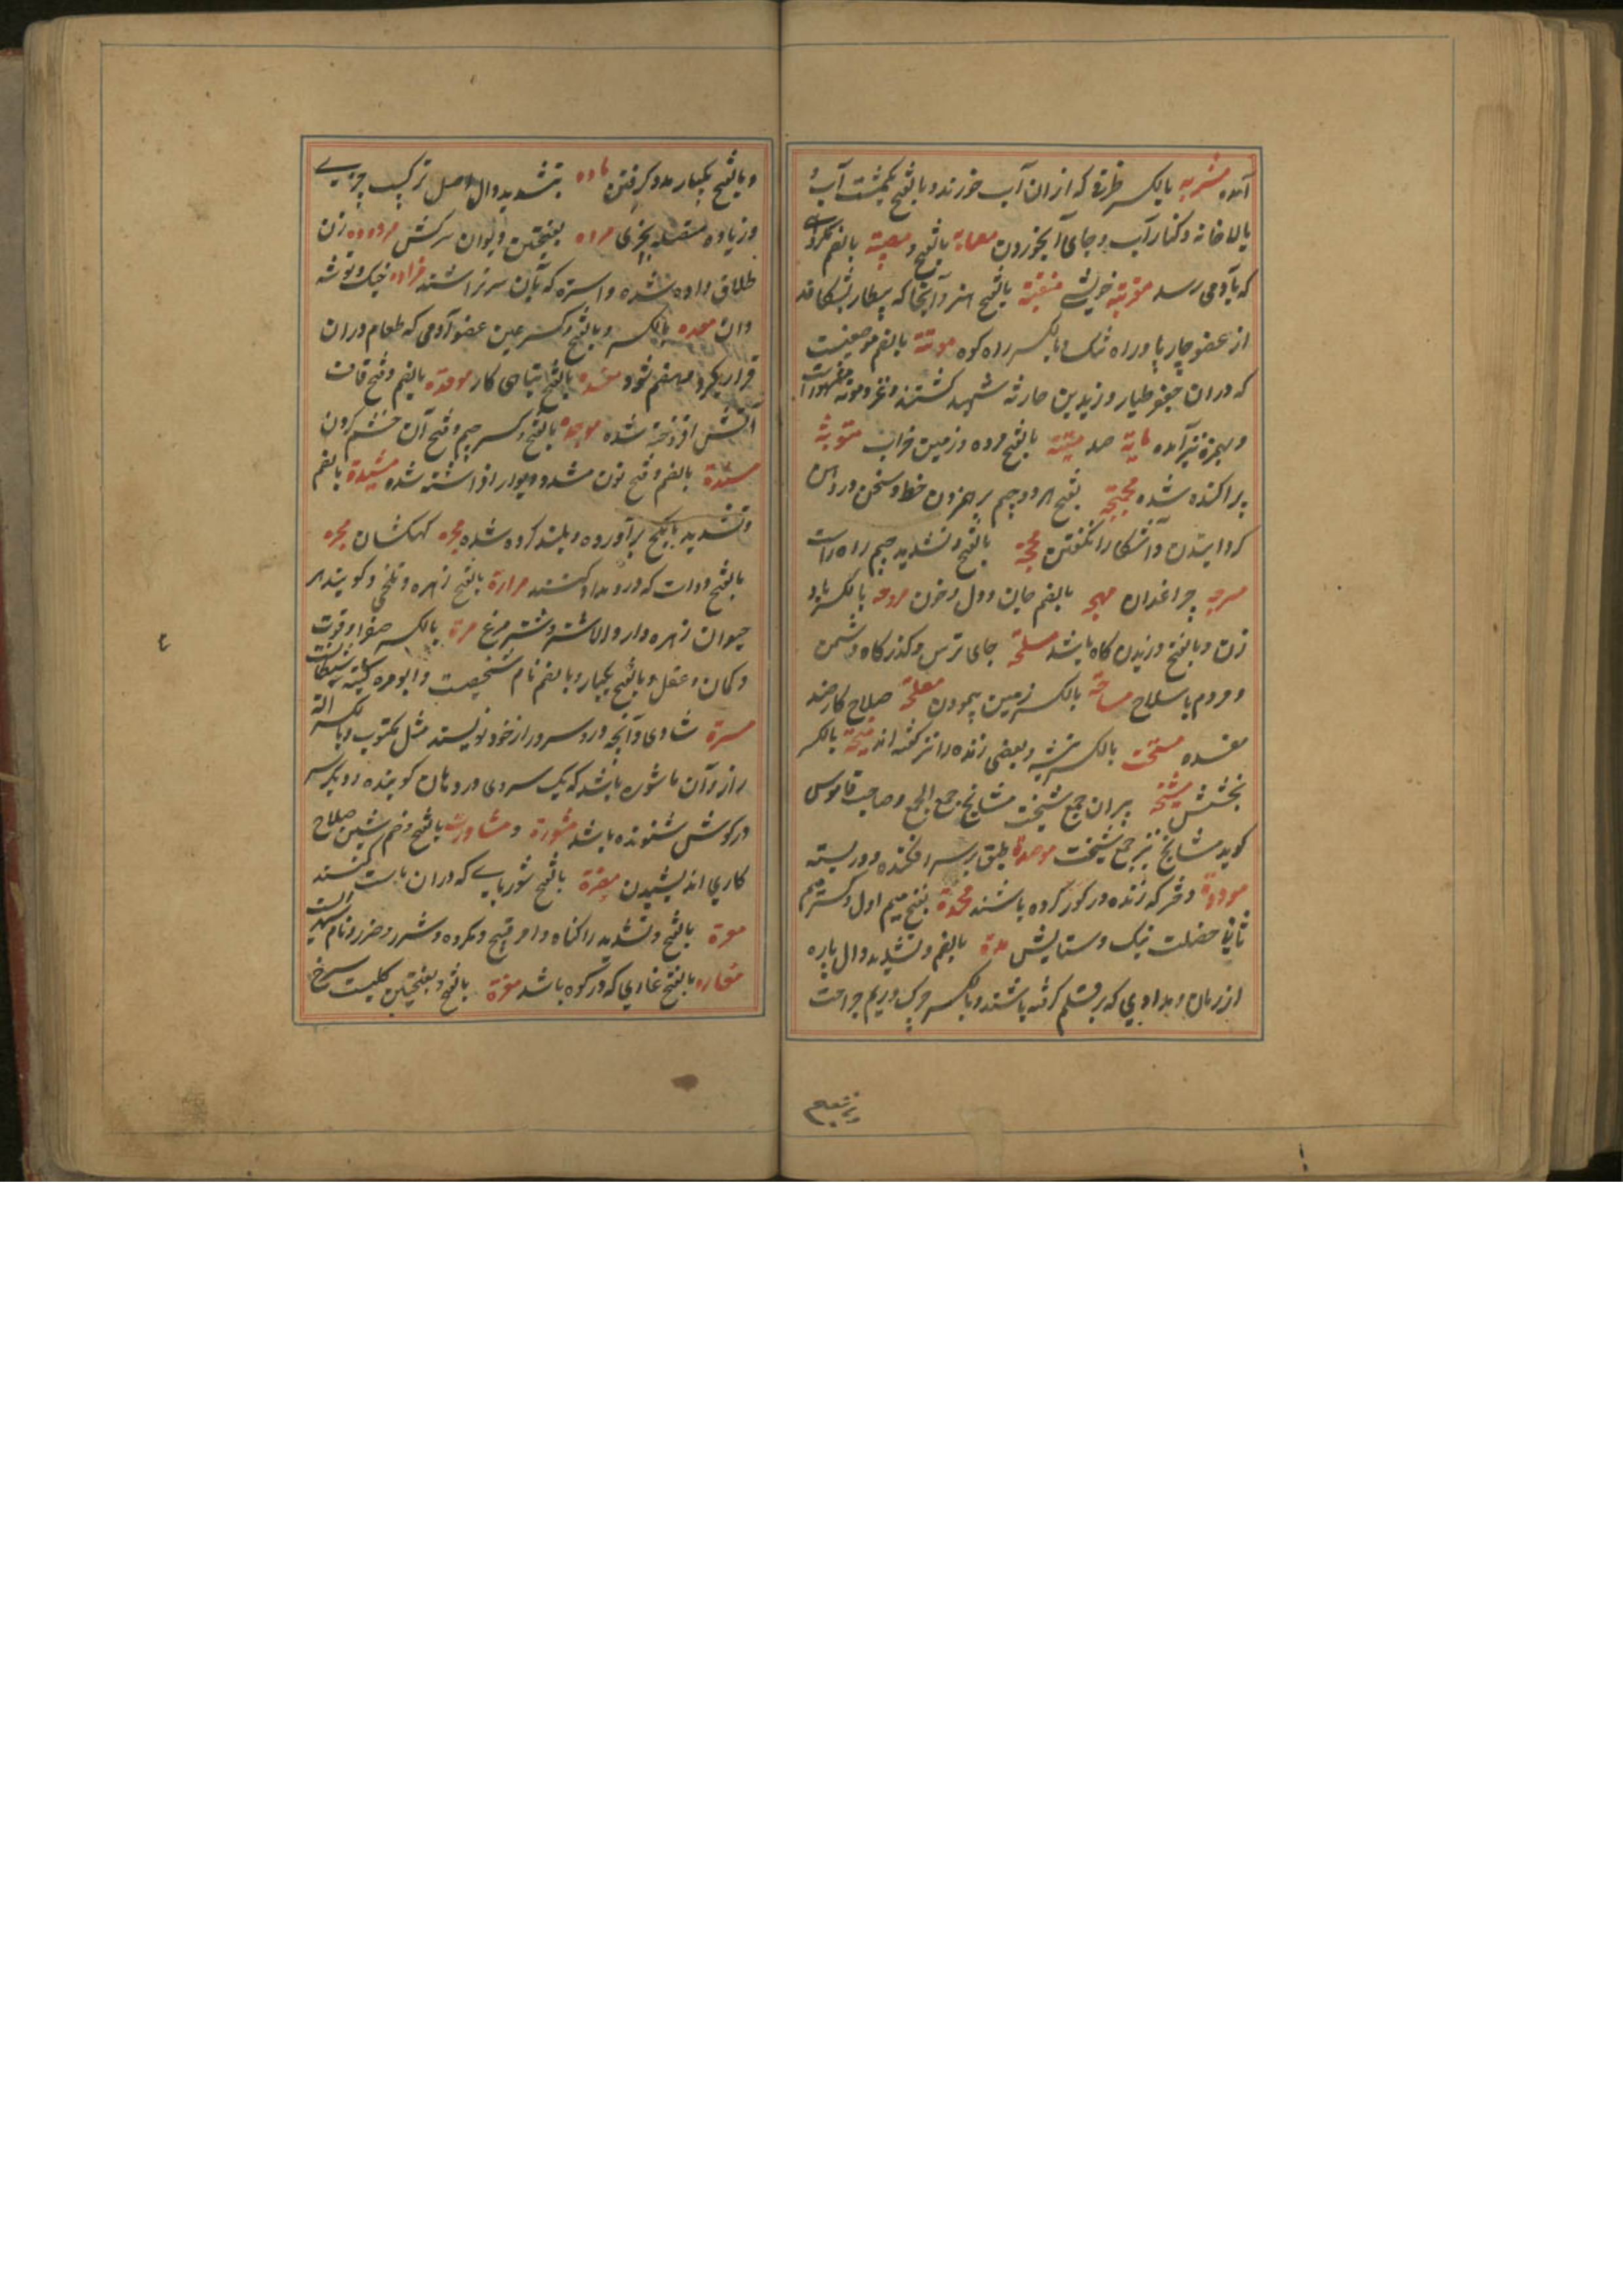 آمده مشربه بالکسر ظرفی که ازان آب خورند و بالفتح یکمشت آب و
بالاخانه و کنار آب و جای آبخوردن بالفتح و مصیبة بالضم مکروهی
که بآدمی رسد مقربة خویشی منقبة بالفتح هنر و آنجا که بیطار بشکافد
از عضو چارپا و راه تنک و بالکسر راه کوه موتة بالضم موضعیست
که دران جعفر طیار و زید بن حارثه شهید کشتند و غزوه موته مشهورات
و بهمزه نیز آمده مایة صد میتة بالفتح مرده و زمین خراب مبثوثة
پراکنده شده مجمجة بفتح هر دو جیم بر هم زدن خط و سخن در دهن
کردانیدن و آشکارا نکفتن محجة بالفتح و تشدید جیم راه راست
مسرجه چراغدان مهجه بالضم جان و دل و خون مروحه بالکسر باد
زن و بالفتح وزیدن کاه باشد مسلحة جای ترس و کذرکاه دشمن
و مردم با سلاح مساحة بالکسر زمین پیمودن مصلحة صلاح کار ضد
مفسده بالکسر و بعضی زنده را نیز کفته اند منحة بالکسر
بخشش مشیخة پیران جمع شیخ مشایخ جمع الجمع و صاحب قاموس
کوید مشایخ نیز جمع شیخست موصدة طبق بر سر افکنده و در بسته
مووودة دختر که زنده در کور کرده باشند محمدة بفتح میم اول و کسر میم
ثانی خصلت نیک و ستایش مدة بالضم و تشدید دال پاره
از زمان و مدادی که بر قلم کرفته باشند و بالکسر چرک و ریم جراحت
و بالفتح یکبار مدد کرفتن ماده بتشدید دال اصل ترکیب چیزی
و زیاده متصله بچیزی مرده بفتحتین دیوان سرکش مردوده زن
طلاق داده شده و استره که بآن سر تراشند مزاده خیک و توشه
دان معده بالکسر و بالفتح و کسر عین عضو آدمی که طعام دران
قرار یکرد و هضم شود مفسده بالفتح تباهی کار موقده بالضم و فتح قاف
آتش افروخته شده موجده بالفتح و کسر جیم و فتح آن خشم کردن
مسندة بالضم و فتح نون مشدد دیوار افراشته شده مشیدة بالضم
و تشدید یا کچ برآورده و بلند کرده شده مجره کهکشان محبره
بالفتح دوات که درو مداد کنند مرارة بالفتح زهره و تلخی و کویند هر
حیوان زهره دارد الا شتر و شتر مرغ مرة بالکسر صفرا و قوت
و کمان و عقل و بالفتح یکبار و بالضم نام شخصیست و ابو مره کنیت شیطانست
مسرة شادی و آنچه در و سرور از خود نویسند مثل مکتوب و بالکسر آلة
راز و آن ماشوره باشد که یک سر وی در دهان کوینده و دیکر سر
در کوش شنونده باشد مشورة و مشاورت بالفتح و ضم شین صلاح
کاری اندیشیدن مضرة بالفتح شوربایی که دران ماست کنند
معرة بالفتح و تشدید را کناه و امر قبیح و مکروه و شر و ضرر و نام شهریست
مغاره بالفتح غاری که در کوه باشد مغرة بالفتح و بفتحتین کلیست سرخ